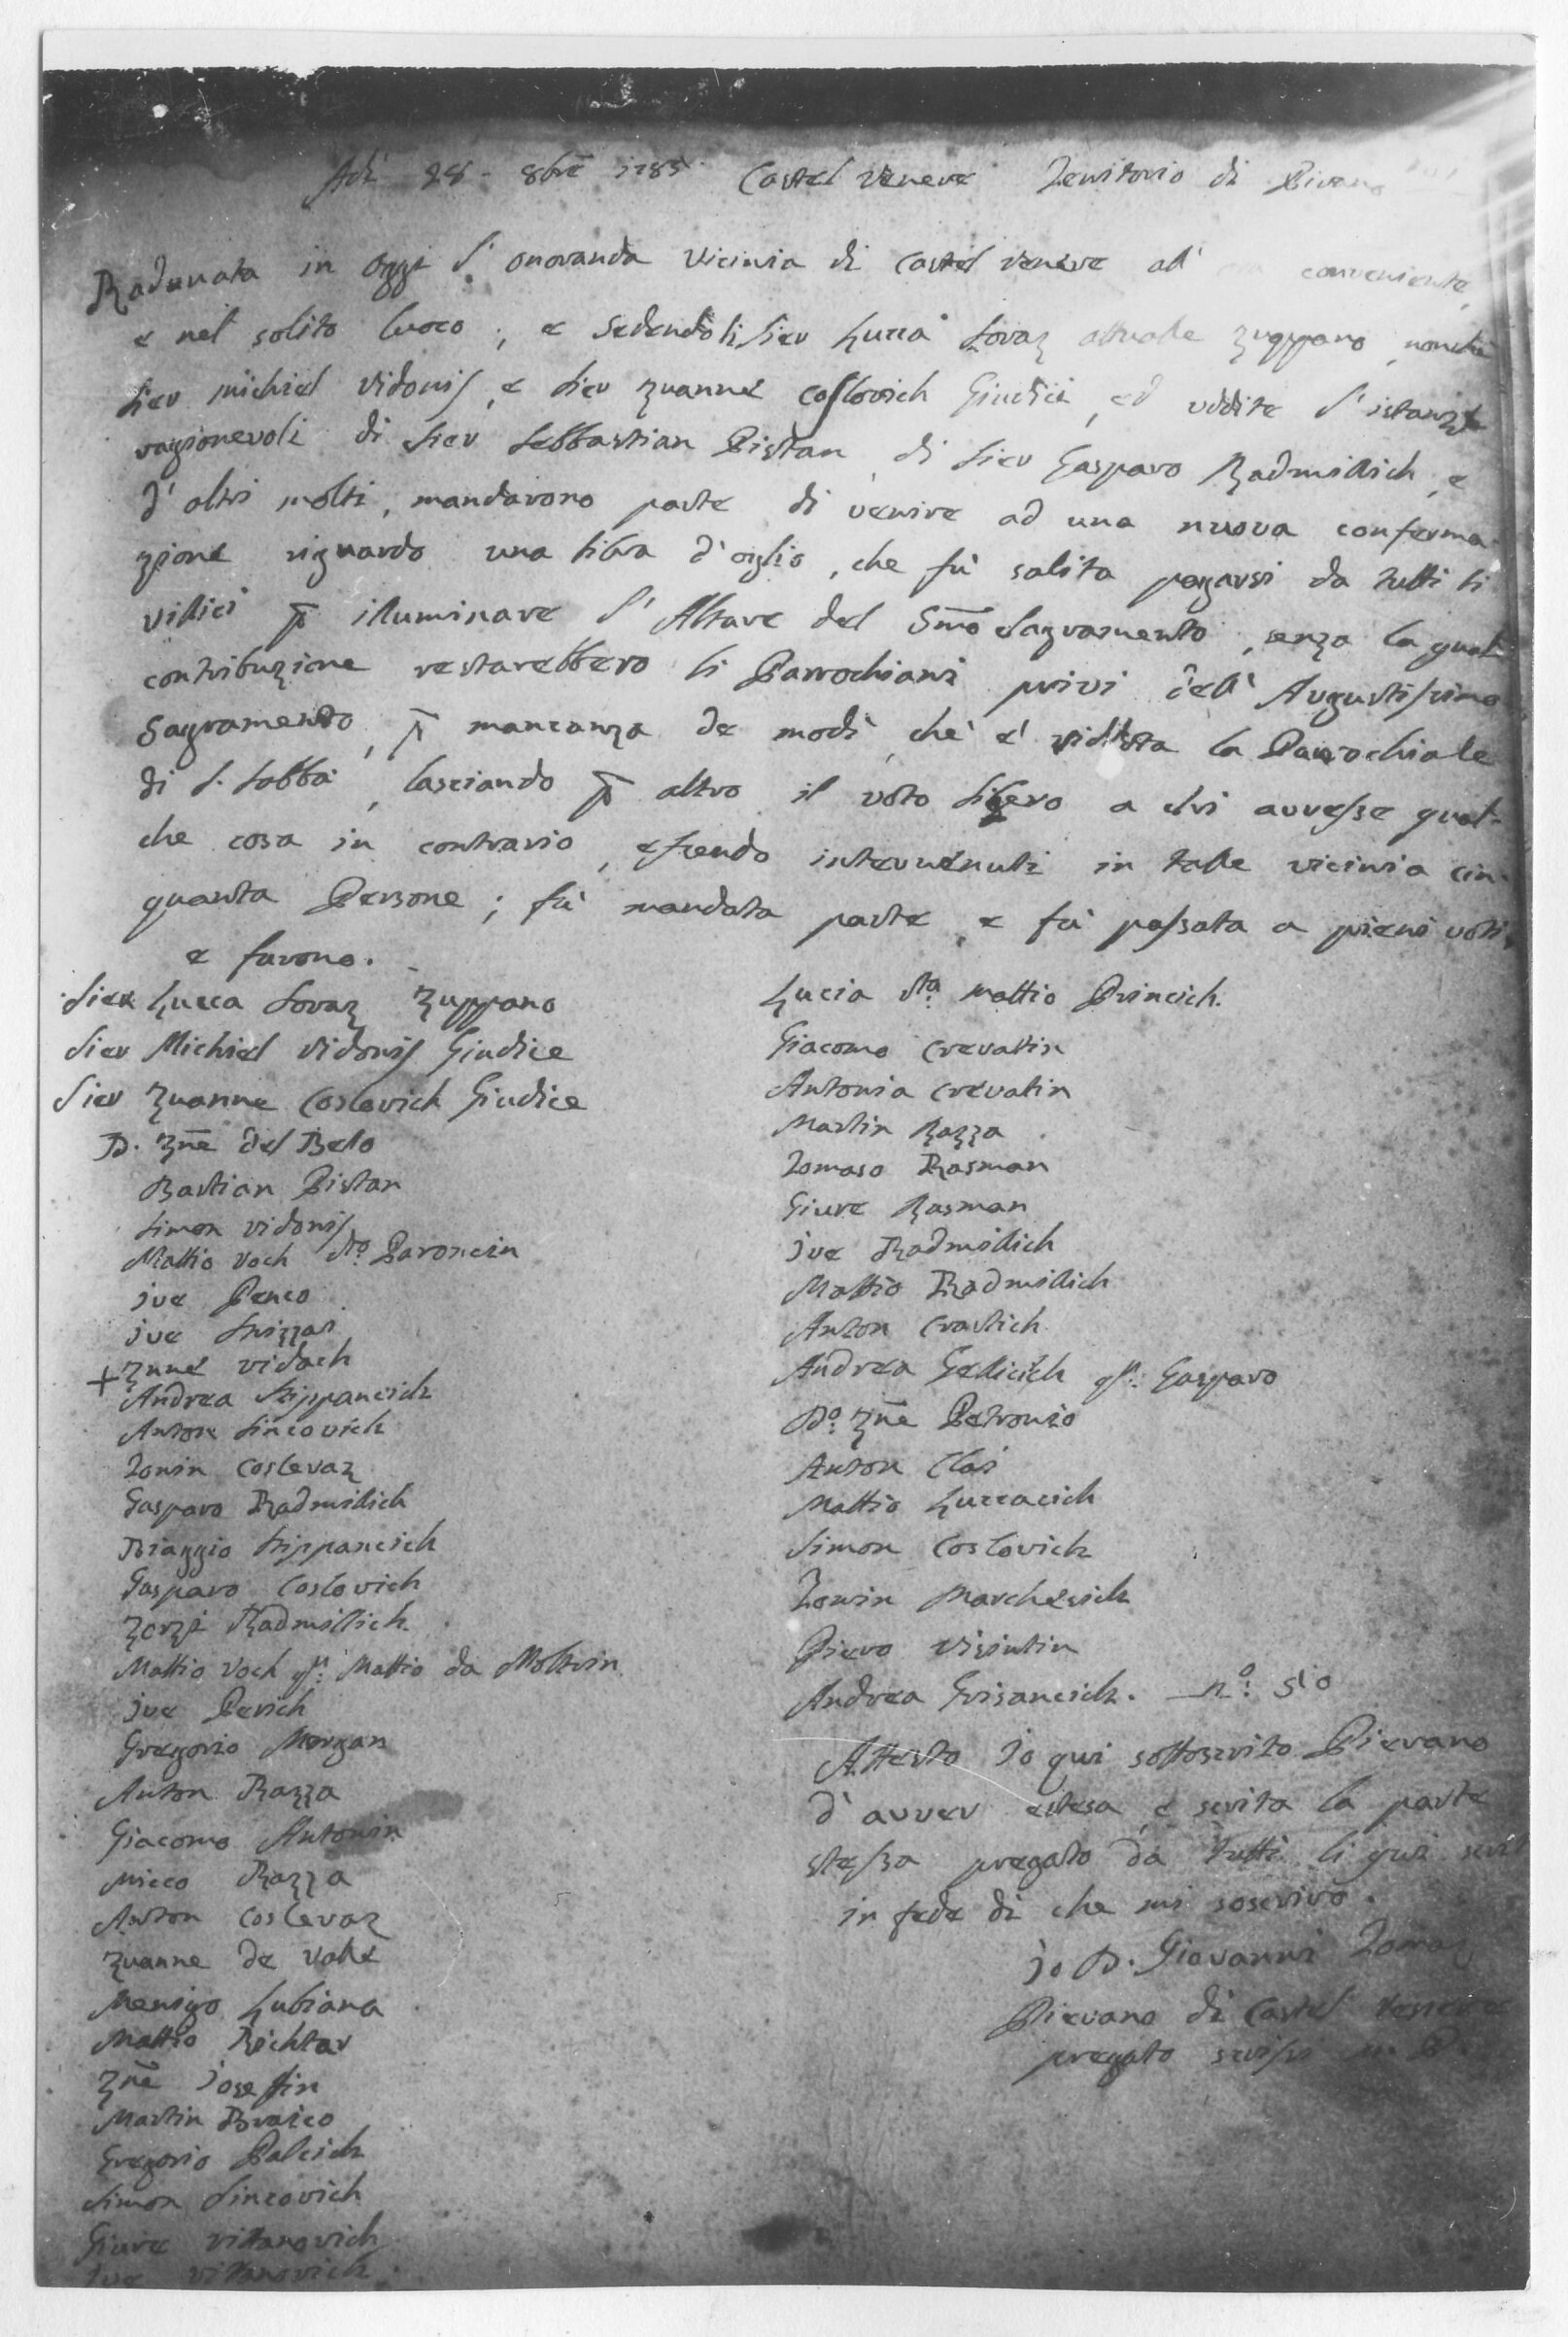 Adi 28 - 8bre 1785 Castel Venere Territorio di Pirano
Radunata in oggi l' onoranda Vicinia di Castel Venere all' conveniente,
e nel solito luoco ; e sedendo li Sier Lucca Sovaz attuale Zuppano, nonchè
Sier Michiel Vidonis, e Sier Zuanne Coslovich Giudici, ed uddite l' istanze
ragionevoli di Sier Sebbastian Pistan, di Sier Gasparo Radmillich, e
d' altri molti, mandarono parte di venire ad una nuova conferma-
zione riguardo una libra d' oglio, che fù solita pagarsi da tutti li
Villici p iluminare l' Altare del Smo Sagramento, senza la qual
contribuzione restarebbero li Parrochiani privi dell' Augustissimo
Sagramento, p mancanza de modi, che è la Parochiale
di S. Sabba, lasciando p altro il voto libero a chi avvesse qual-
che cosa in contrario, essendo intervenuti in talle vicinia cin-
quanta Persone ; fù mandata parte, e fù passata a pieni voti,
e furono.
Sier Lucca Sovaz Zuppano
Sier Michiel Vidonis Giudice
Sier Zuanne Coslovich Giudice
D. Zne del Belo
Bastian Pistan
Simon Vidonis
Mattio Voch dto. Paroncin
Ive Penco
Ive
+ Znne Vidach
Andrea Stippancich
Anton Sincovich
Tonin Coslevaz
Gasparo Radmillich
Biaggio Stippancich
Gasparo Coslovich
Zorzi Radmillich
Mattio Voch qm. Mattio da Moltrin
Ive Perich
Gregorio Morgan
Anton Razza
Giacomo Antonin
Micco Razza
Anton Coslevaz
Zuanne de Valle
Menigo Lubiana
Mattio Richtar
Zne Iosefin
Martin Braico
Gregorio Palcich
Simon Sincovich
Giure Vittanovich
Ive Vittanovich
Lucia dta. Mattio Princich.
Giacomo Crevatin
Antonia Crevatin
Martin Razza
Tomaso Rasman
Giure Rasman
Ive Radmillich
Mattio Radmillich
Anton Crastich
Andrea Gellicich qm. Gasparo
Do. Zne Petronio
Anton Clai
Mattio Luccacich
Simon Coslovich
Tonin Marchesich
Piero Visintin
Andrea Grisancich. - no: 50
Attesto Io qui sottoscrito Pievano
d' avver estesa, e scrita la parte
stessa pregato da tutti li qui
in fede di che mi soscrivo.
Io D. Giovanni
Pievano di Castel Venere
pregato scrissi